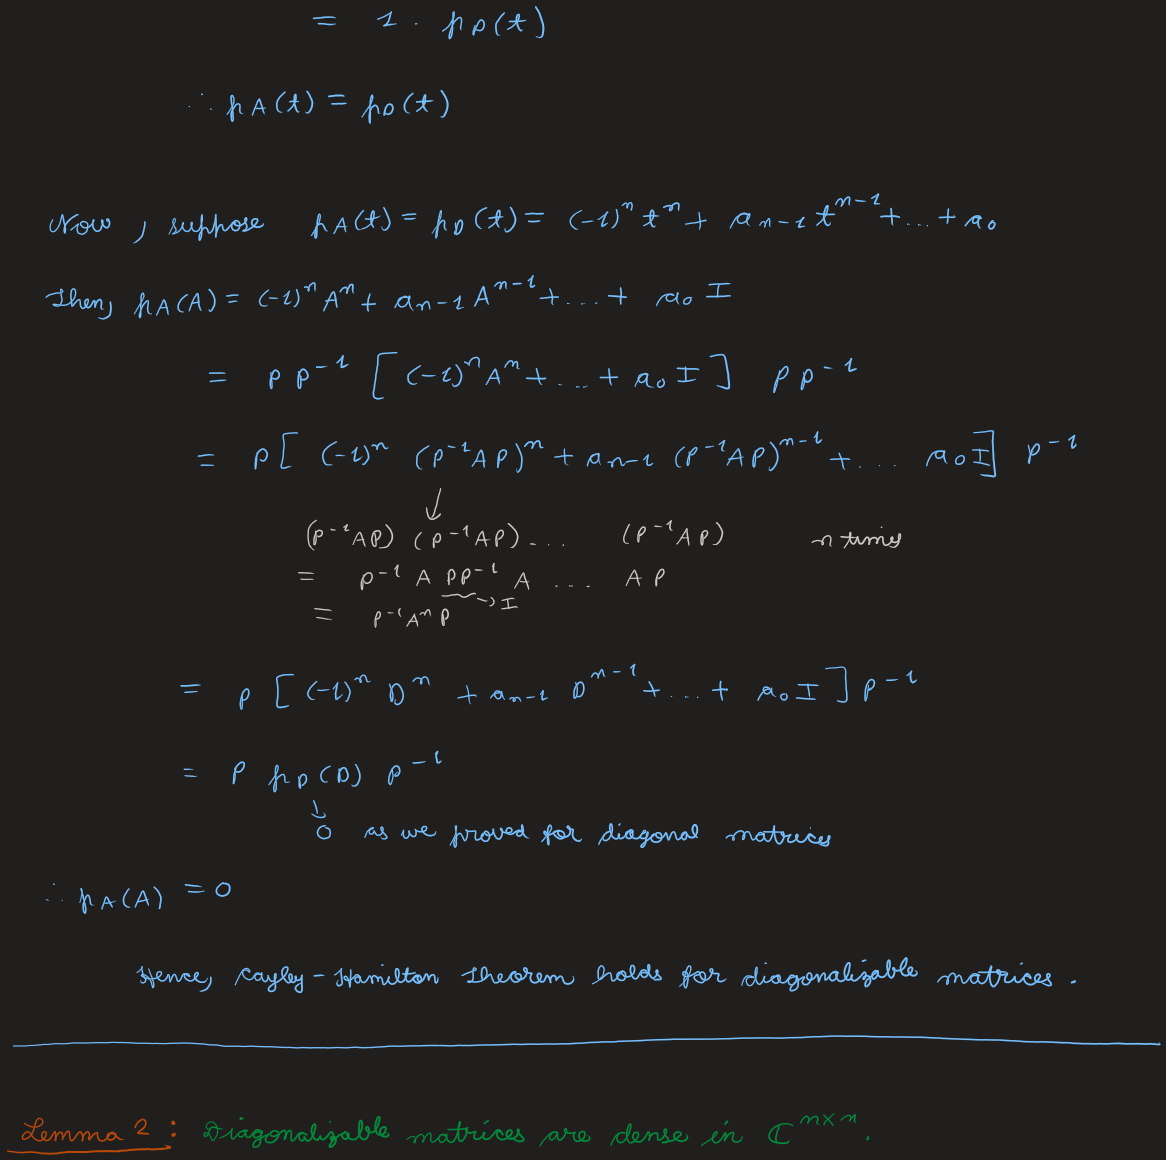 = 1 · p_D(t)
∴ p_A(t) = p_D(t)
Now, suppose p_A(t) = p_D(t) = (-1)^n t^n + a_{n-1} t^{n-1} + ... + a_0
Then, p_A(A) = (-1)^n A^n + a_{n-1} A^{n-1} + ... + a_0 I
= P P^{-1} [ (-1)^n A^n + ... + a_0 I ] P P^{-1}
= P [ (-1)^n (P^{-1}AP)^n + a_{n-1} (P^{-1}AP)^{n-1} + ... a_0 I ] P^{-1}
↓
(P^{-1}AP) (P^{-1}AP) ... (P^{-1}AP) n times
= P^{-1} A PP^{-1} A ... A P
→ I
= P^{-1} A^n P
= P [ (-1)^n D^n + a_{n-1} D^{n-1} + ... + a_0 I ] P^{-1}
= P p_D(D) P^{-1}
↓
0 as we proved for diagonal matrices
∴ p_A(A) = 0
Hence, Cayley-Hamilton Theorem holds for diagonalizable matrices.
Lemma 2 : Diagonalizable matrices are dense in ℂ^{n×n}.